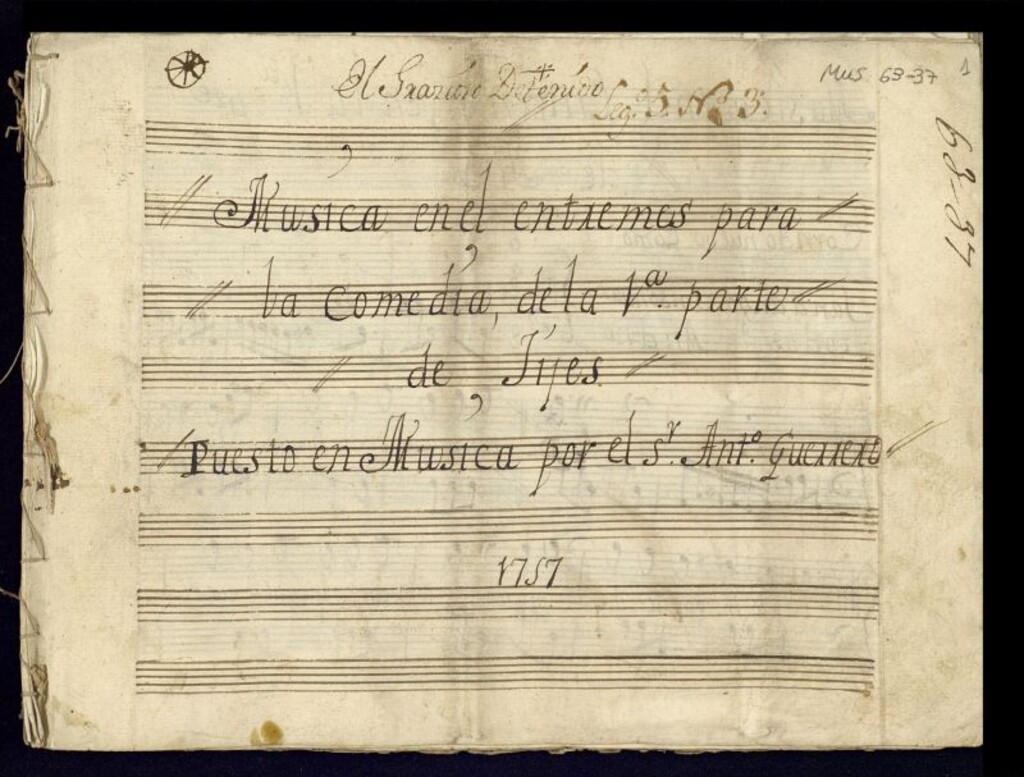 El Detenido
Leg.º 5. N.º 3.
Mus 63-37
1
63-37
Musica en el entremes para
la comedia, de la 1ª parte
de
Puesto en Musica por el s.r Ant.º Guerrero
1757